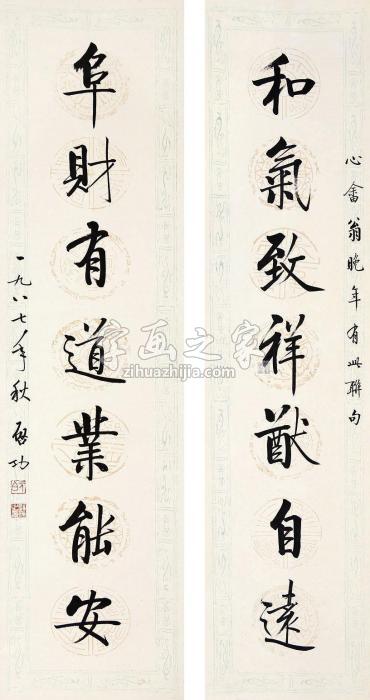 心畬翁晚年有此聯句
和氣致祥猷自遠
阜財有道業能安
一九八七年秋 啓功
字画之家
zihuazhijia.com